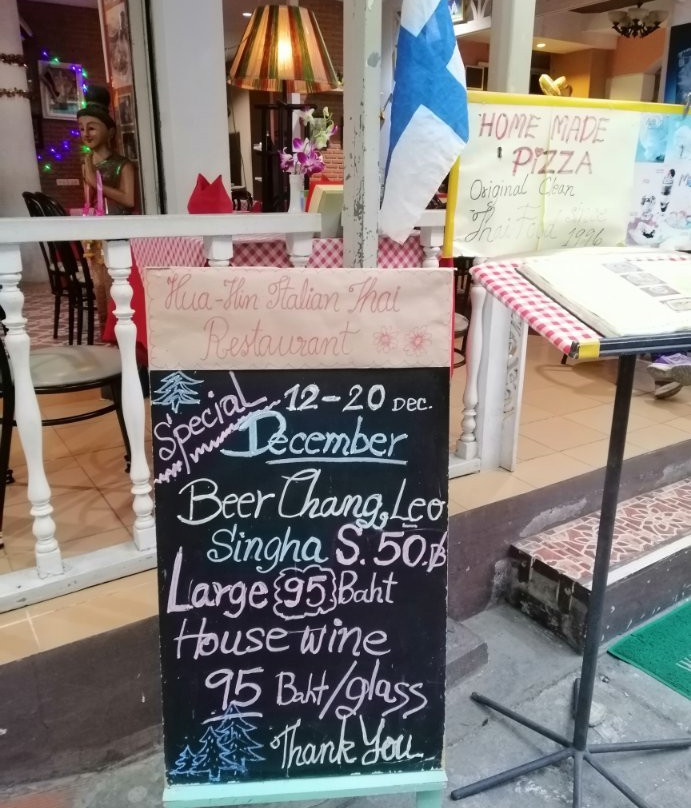 HOME MADE
PIZZA
Original Clean
Thai Food Since
1996
Hua-Hin Italian Thai
Restaurant
Special
12-20 DEC.
December
Beer Chang, Leo
Singha S. 50.฿
Large 95 Baht
House wine
95 Baht/glass
Thank You